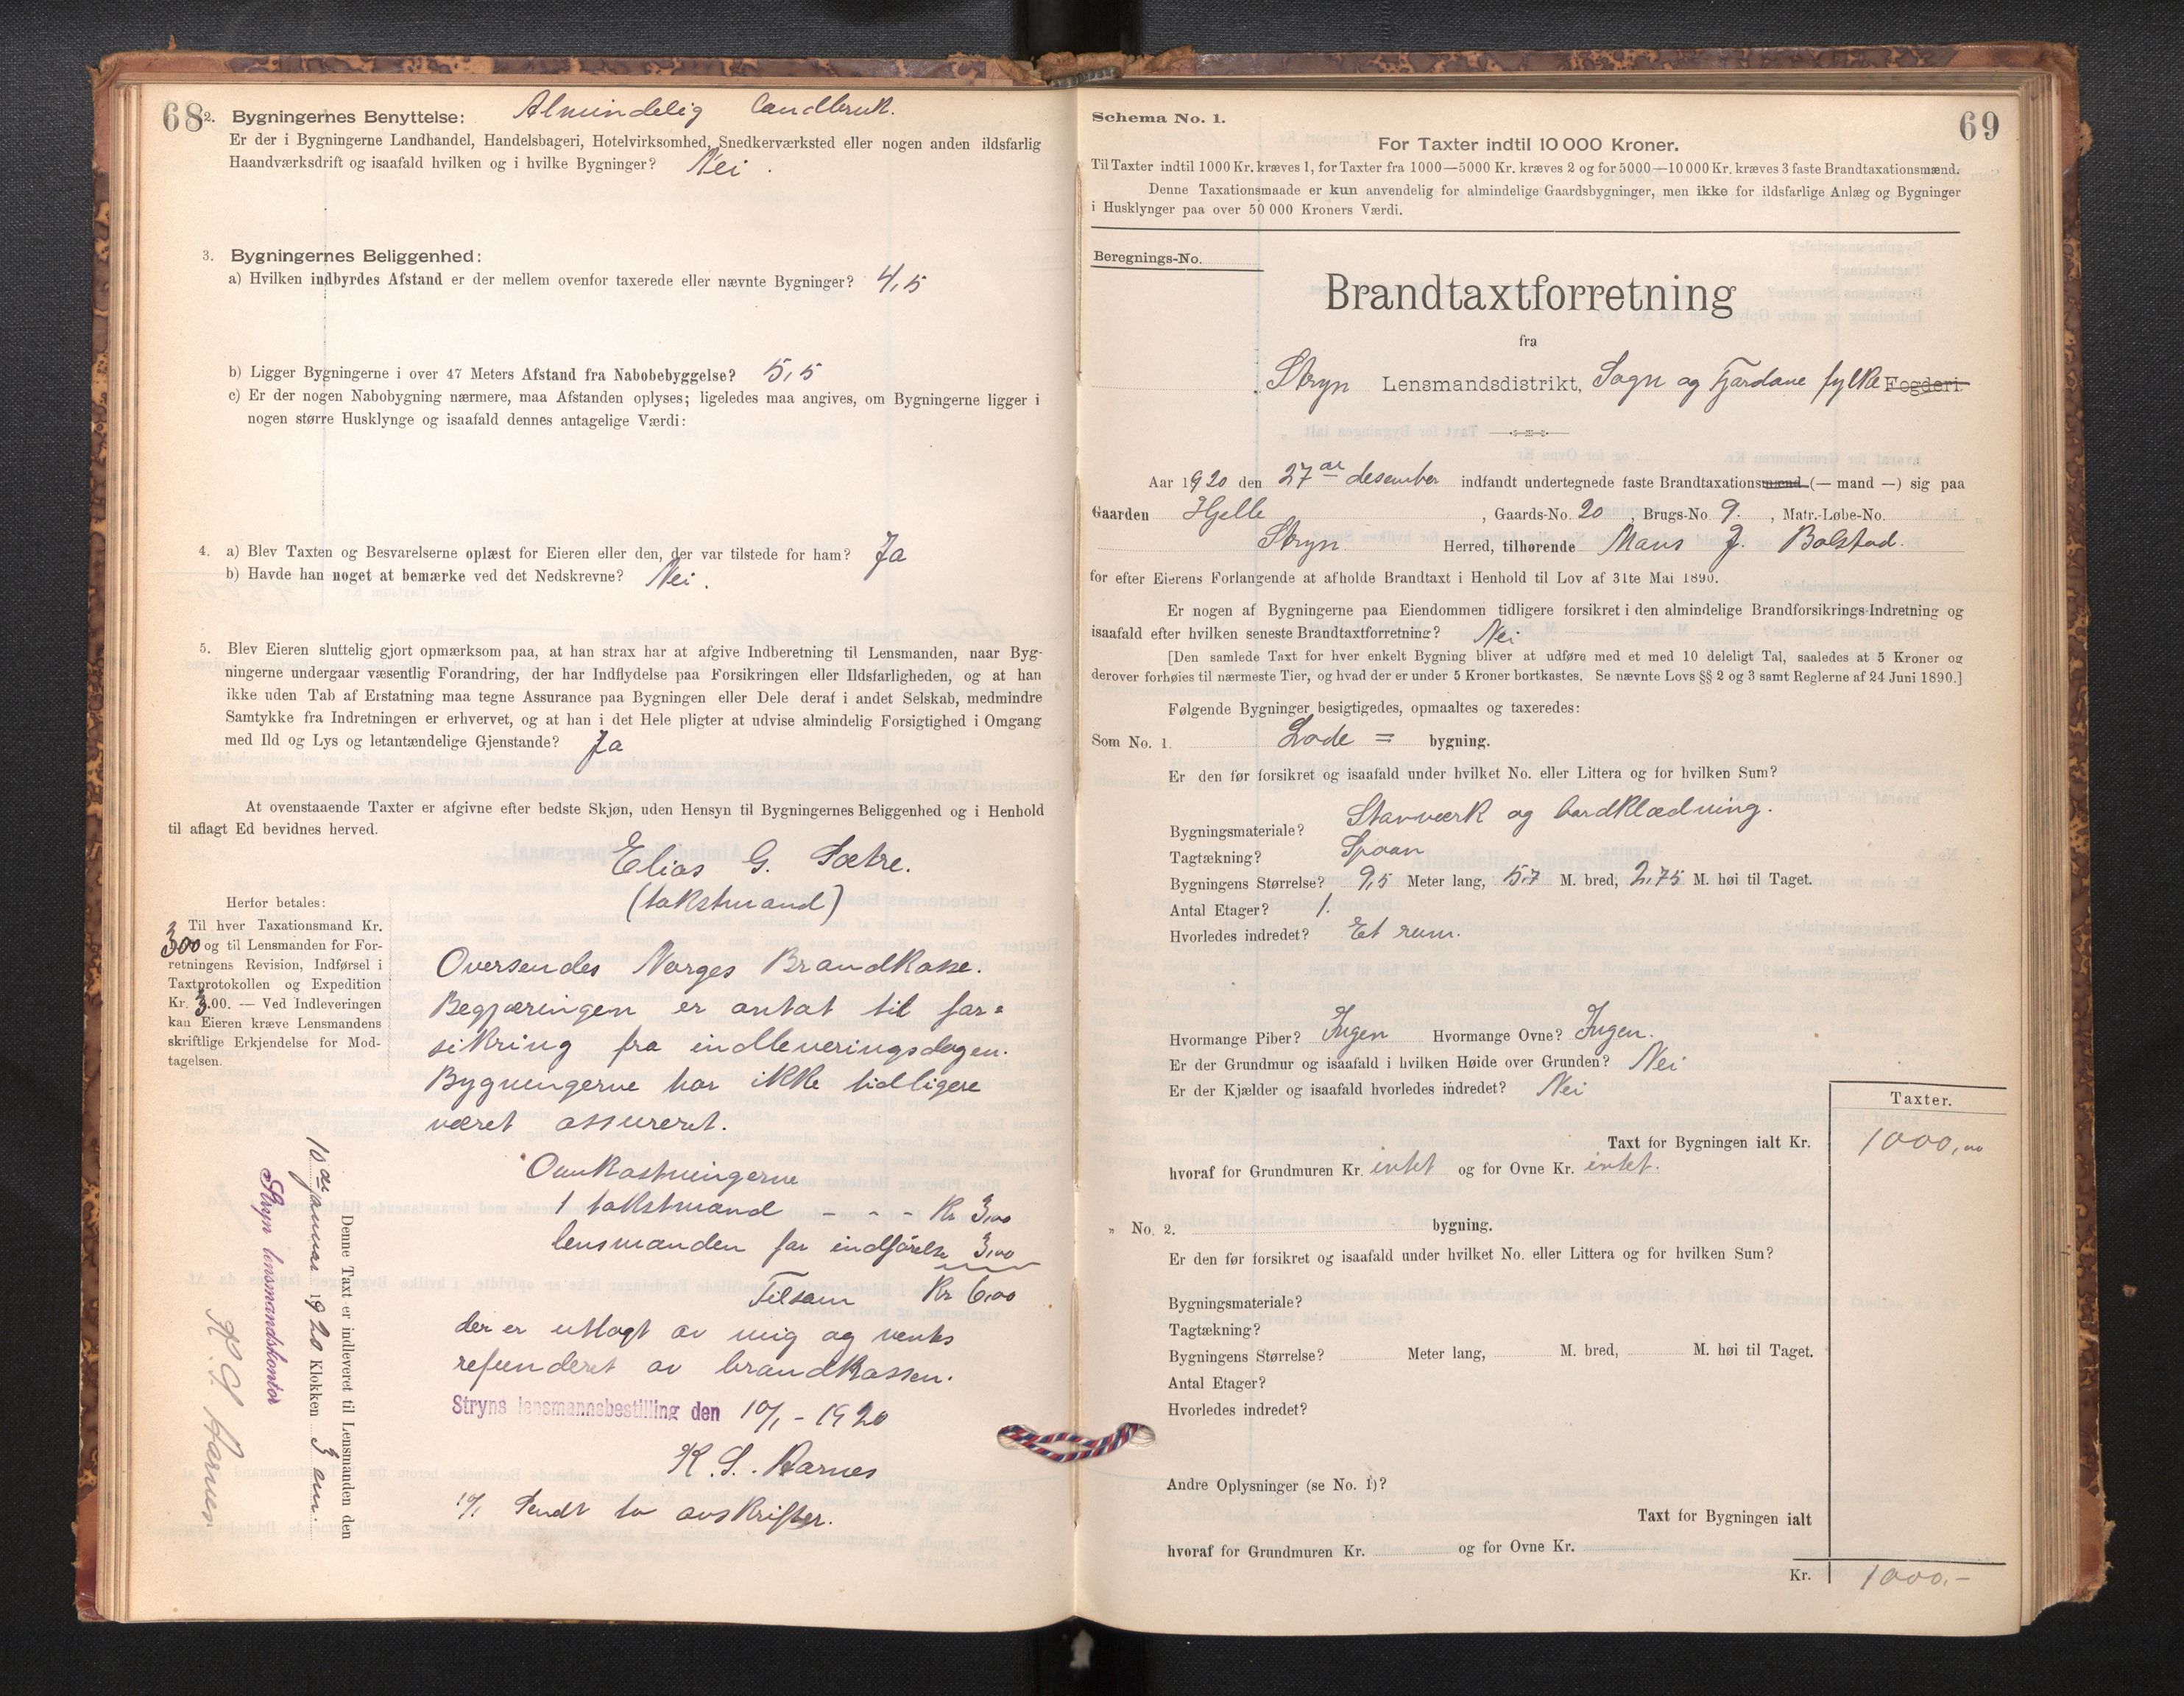 68
2. Bygningernes Benyttelse: Almindelig landbruk.
Er der i Bygningerne Landhandel, Handelsbageri, Hotelvirksomhed, Snedkerværksted eller nogen anden ildsfarlig
Haandværksdrift og isaafald hvilken og i hvilke Bygninger? Nei.
3. Bygningernes Beliggenhed:
a) Hvilken indbyrdes Afstand er der mellem ovenfor taxerede eller nævnte Bygninger? 4,5
b) Ligger Bygningerne i over 47 Meters Afstand fra Nabobebyggelse? 5,5
c) Er der nogen Nabobygning nærmere, maa Afstanden oplyses; ligeledes maa angives, om Bygningerne ligger i
nogen større Husklynge og isaafald dennes antagelige Værdi:
4. a) Blev Taxten og Besvarelserne oplæst for Eieren eller den, der var tilstede for ham? Ja
b) Havde han noget at bemærke ved det Nedskrevne? Nei.
5. Blev Eieren sluttelig gjort opmærksom paa, at han strax har at afgive Indberetning til Lensmanden, naar Byg-
ningerne undergaar væsentlig Forandring, der har Indflydelse paa Forsikringen eller Ildsfarligheden, og at han
ikke uden Tab af Erstatning maa tegne Assurance paa Bygningen eller Dele deraf i andet Selskab, medmindre
Samtykke fra Indretningen er erhvervet, og at han i det Hele pligter at udvise almindelig Forsigtighed i Omgang
med Ild og Lys og letantændelige Gjenstande? Ja
At ovenstaaende Taxter er afgivne efter bedste Skjøn, uden Hensyn til Bygningernes Beliggenhed og i Henhold
til aflagt Ed bevidnes herved.
Elias G. Sætre.
(takstmand)
Herfor betales:
Til hver Taxationsmand Kr.
3,00 og til Lensmanden for For-
retningens Revision, Indførsel i
Taxtprotokollen og Expedition
Kr. 3.00. — Ved Indleveringen
kan Eieren kræve Lensmandens
skriftlige Erkjendelse for Mod-
tagelsen.
Oversendes Norges Brandkasse.
Begjæringen er antat til for=
sikring fra indleveringsdagen.
Bygningerne har ikke tidligere
været assureret.
Omkostningerne
1 takstmand - - - Kr 3,00
lensmanden for indførelse 3,00
Tilsam Kr 6,00
der er utlagt av mig og ventes
refunderet av brandkassen.
Stryns lensmannsbestilling den 10/1 - 1920
K. S. Aarnes
10/1 Sendt to avskrifter.
Denne Taxt er indleveret til Lensmanden den
10de januar 1920 Klokken 3 em.
Stryn lensmandskontor
K. S. Aarnes
69
Schema No. 1.
For Taxter indtil 10 000 Kroner.
Til Taxter indtil 1000 Kr. kræves 1, for Taxter fra 1000—5000 Kr. kræves 2 og for 5000—10000 Kr. kræves 3 faste Brandtaxationsmænd.
Denne Taxationsmaade er kun anvendelig for almindelige Gaardsbygninger, men ikke for ildsfarlige Anlæg og Bygninger
i Husklynger paa over 50 000 Kroners Værdi.
Beregnings-No.
Brandtaxtforretning
fra
Stryn Lensmandsdistrikt, Sogn og Fjordane fylke Fogderi
Aar 1920 den 27de desember indfandt undertegnede faste Brandtaxationsmænd (— mand —) sig paa
Gaarden Hjelle, Gaards-No. 20, Brugs-No. 9., Matr.-Løbe-No.
Stryn Herred, tilhørende Mons J. Bolstad.
for efter Eierens Forlangende at afholde Brandtaxt i Henhold til Lov af 31te Mai 1890.
Er nogen af Bygningerne paa Eiendommen tidligere forsikret i den almindelige Brandforsikrings-Indretning og
isaafald efter hvilken seneste Brandtaxtforretning? Nei
[Den samlede Taxt for hver enkelt Bygning bliver at udføre med et med 10 deleligt Tal, saaledes at 5 Kroner og
derover forhøies til nærmeste Tier, og hvad der er under 5 Kroner bortkastes. Se nævnte Lovs §§ 2 og 3 samt Reglerne af 24 Juni 1890.]
Følgende Bygninger besigtigedes, opmaaltes og taxeredes:
Som No. 1. Lade = bygning.
Er den før forsikret og isaafald under hvilket No. eller Littera og for hvilken Sum?
Bygningsmateriale? Stavverk og bordklædning.
Tagtækning? Spaan
Bygningens Størrelse? 9,5 Meter lang, 5,7 M. bred, 2,75 M. høi til Taget.
Antal Etager? 1.
Hvorledes indredet? Et rum.
Hvormange Piber? Ingen Hvormange Ovne? Ingen.
Er der Grundmur og isaafald i hvilken Høide over Grunden? Nei
Er der Kjælder og isaafald hvorledes indredet? Nei
Taxter.
Taxt for Bygningen ialt Kr. 1000,00
hvoraf for Grundmuren Kr. intet og for Ovne Kr. intet.
„ No. 2. bygning.
Er den før forsikret og isaafald under hvilket No. eller Littera og for hvilken Sum?
Bygningsmateriale?
Tagtækning?
Bygningens Størrelse? Meter lang, M. bred, M. høi til Taget.
Antal Etager?
Hvorledes indredet?
Andre Oplysninger (se No. 1)?
Taxt for Bygningen ialt
hvoraf for Grundmuren Kr. og for Ovne Kr.
Kr. 1000.-